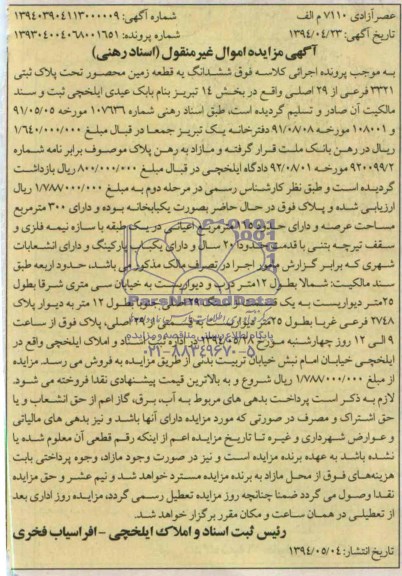 عصرآزادی ۷۱۱۰ م الف
شماره آگهی: ۱۳۹۴۰۳۹۰۴۱۱۳۰۰۰۰۰۹
تاریخ آگهی: ۱۳۹۴/۰۴/۲۳
شماره پرونده: ۱۳۹۳۰۴۰۰۴۰۶۸۰۰۱۶۵۱
آگهی مزایده اموال غیرمنقول (اسناد رهنی)
به موجب پرونده اجرائی کلاسه فوق ششدانگ یه قطعه زمین محصور تحت پلاک ثبتی
۳۳۲۱ فرعی از ۲۹ اصلی واقع در بخش ۱۴ تبریز بنام بابک عیدی ایلخچی ثبت و سند
مالکیت آن صادر و تسلیم گردیده است، طبق اسناد رهنی شماره ۱۰۷۶۳۶ مورخه ۹۱/۰۵/۰۵
و ۱۰۸۰۰۱ مورخه ۹۱/۰۸/۰۸ دفترخانه یک تبریز جمعا در قبال مبلغ ۱/۶۴۰/۰۰۰/۰۰۰
ریال در رهن بانک ملت قرار گرفته و مازاد به رهن پلاک موصوف برابر نامه شماره
۹۲۰۰۹۹/۲ مورخه ۹۲/۰۸/۰۱ دادگاه ایلخچی در قبال مبلغ ۸۰۰/۰۰۰/۰۰۰ ریال بازداشت
گردیده است و طبق نظر کارشناس رسمی در مرحله دوم به مبلغ ۱/۷۸۸/۰۰۰/۰۰۰ ریال
ارزیابی شده و پلاک فوق در حال حاضر بصورت یکبابخانه بوده و دارای ۳۰۰ مترمربع
مساحت عرصه و دارای حدود ۱۱۵ مترمربع اعیانی در یک طبقه با سازه نیمه فلزی و
سقف تیرچه بتنی با قدمت حدودا ۲۰ سال و دارای یکباب پارکینگ و دارای انشعابات
شهری که برابر گزارش مامور اجرا در تصرف مالک مذکور می باشد، حدود اربعه طبق
سند مالکیت: شمالا بطول ۱۲متر درب و دیواریست به خیابان سی متری شرقا بطول
۲۵متر دیواریست به یک ۲۹ اصلی جنوبا بطول ۱۲ متر به دیوار پلاک
۲۷۴۸ فرعی غربا بطول ۲۵متر دیواریست به فرعی از ۲۹ اصلی، پلاک فوق از ساعت
۹ الی ۱۲ روز چهارشنبه مورخ ۱۳۹۴/۰۵/۱۸ در اداره ثبت اسناد و املاک ایلخچی واقع در
ایلخچی خیابان امام نبش خیابان تربیت بدنی از طریق مزایده به فروش می رسد. مزایده
از مبلغ ۱/۷۸۸/۰۰۰/۰۰۰ ریال شروع و به بالاترین قیمت پیشنهادی نقدا فروخته می شود.
لازم به ذکر است پرداخت بدهی های مربوط به آب، برق، گاز اعم از حق انشعاب و یا
حق اشتراک و مصرف در صورتی که مورد مزایده دارای آنها باشد و نیز بدهی های مالیاتی
و عوارض شهرداری و غیره تا تاریخ مزایده اعم از اینکه رقم قطعی آن معلوم شده یا
نشده باشد به عهده برنده مزایده است و نیز در صورت وجود مازاد، وجوه پرداختی بابت
هزینه‌های فوق از محل مازاد به برنده مزایده مسترد خواهد شد و نیم عشر و حق مزایده
نقدا وصول می گردد ضمنا چنانچه روز مزایده تعطیل رسمی گردد، مزایده روز اداری بعد
از تعطیلی در همان ساعت و مکان مقرر برگزار خواهد شد.
رئیس ثبت اسناد و املاک ایلخچی - افراسیاب فخری
تاریخ انتشار: ۱۳۹۴/۰۵/۰۴
ParsNamadData
پایگاه اطلاع رسانی مناقصه و مزایده
۰۲۱-۸۸۳۴۹۶۷۰-۵